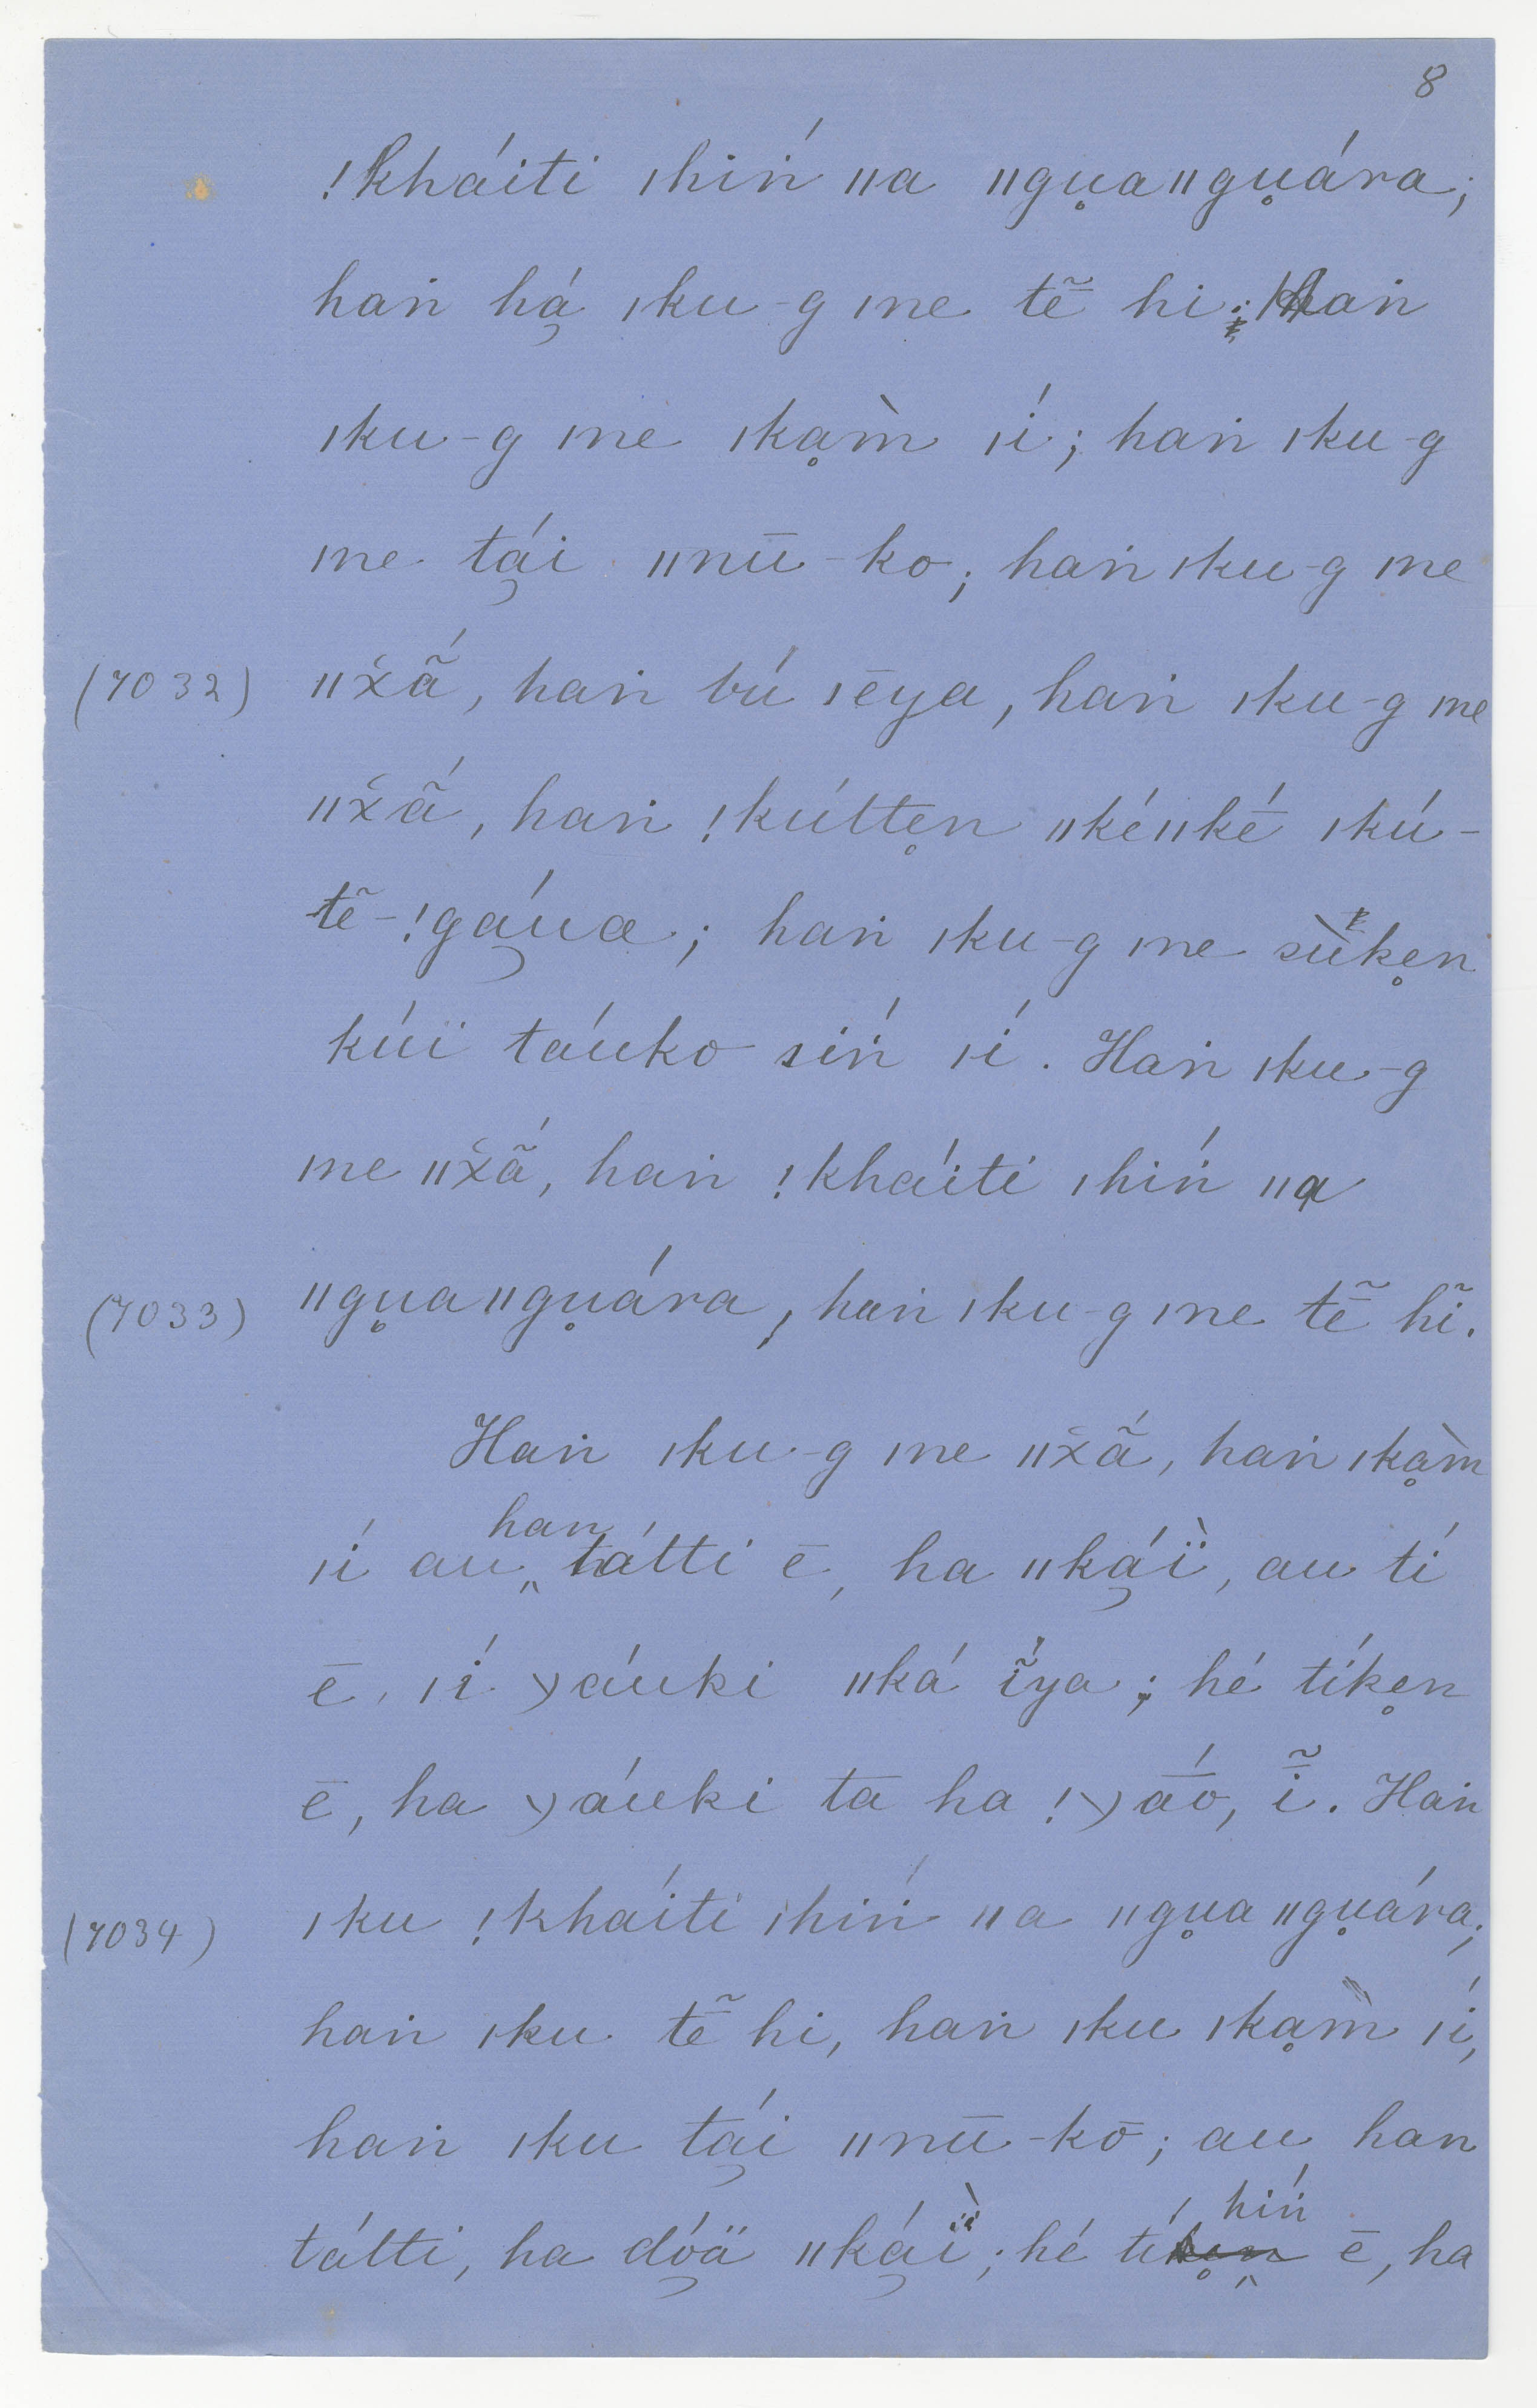 8
!kháiti ǀhiṅ́ ǁa ǁgu̥aǁgu̥ára;
haṅ há̧ ǀku-g ǀne tẽ̄ hi; haṅ
ǀku-g ǀne ǀkḁm̀ ǀí; haṅ ǀku-g
ǀne tá̧i ǁnū-ko; haṅ ǀku-g ǀne
(7032) ǁx̌ã́, haṅ bú ǀēya, haṅ ǀku-g ǀne
ǁx̌ã́, haṅ !kútte̥n ǁkéǁké̄ ǀkú-
tẽ-!gá̧uœ; haṅ ǀku-g ǀne sùke̥n
kúï táuko siṅ́ ǀí. Haṅ ǀku-g
ǀne ǁx̌ã́, haṅ !kháiti ǀhiṅ́ ǁa
(7033) ǁgu̥aǁgu̥ára, haṅ ǀku-g ǀne tẽ̄ hĩ.
Haṅ ǀku-g ǀne ǁx̌ã́, haṅ ǀkḁm̀
ǀí au han tátti ē, ha ǁká̧ï, au tí
ē, ǀí ⦆áuki ǁká ĩ́ya; hé tíke̥n
ē, ha ⦆áuki tā ha !⦆ā́o, ĩ̄. Haṅ
(7034) ǀku !kháiti ǀhiṅ́ ǁa ǁgu̥aǁgu̥ára;
haṅ ǀku tẽ̄ hi, haṅ ǀku ǀkḁm̀ ǀí,
haṅ ǀku tá̧i ǁnū-kō; au han
tátti, ha dó̧ä ǁká̧ï; hé tí hiṅ́ ē, ha